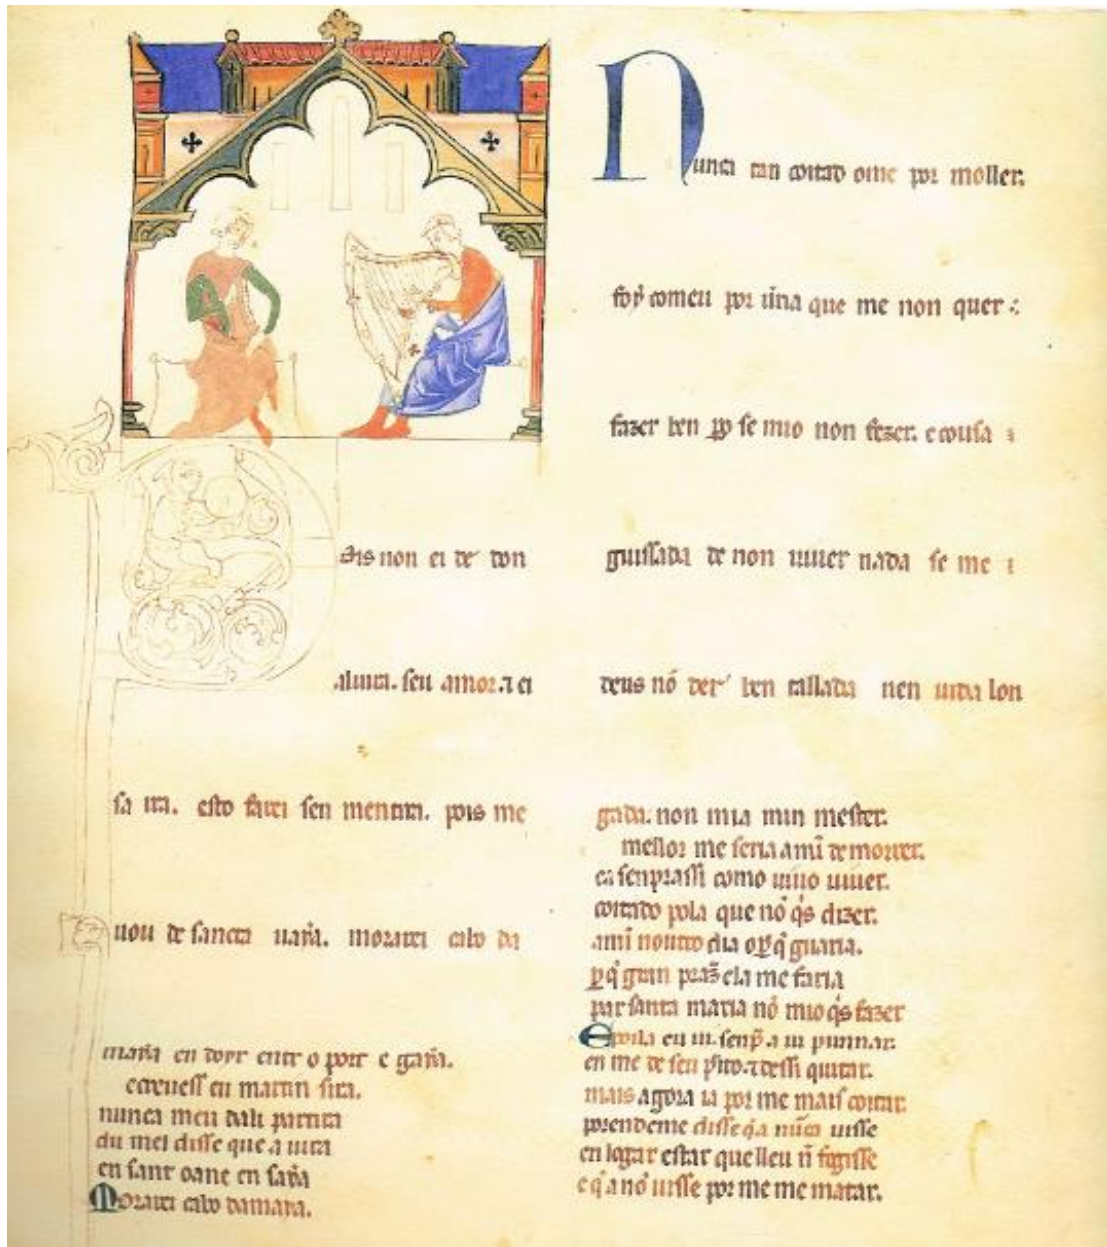 ois non ei de don
aluira. seu amor. ⁊ ei
sa ira. esto farei sen mentira. pois me
uou de sancta uaỹa. morarei cabo da
maỹa en doyr entr o poir e gaỹa.
Secreuess eu martin sira.
nunca meu dali partira
du mel disse que a uira
en sant oane en saỹa
Morarei cabo damaya.
Nunca tan coitad ome por moller.
foy comeu por ūna que me non quer
fazer ben p̄o se mio non fezer. e cousa
guissada de non uiuer nada se me
deus nō der ben tallada nen uida lon
gada. non mia min mester.
mellor me seria amī de morrer.
ca senprassi como uiuo uiuer.
coitado pola que nō q̄s dizer.
amī noutro dia
p̄q̄ gran praz̄ ela me faria
par santa maria nō mio q̄s fazer
E poila eu ui. senp̄ a ui punnar.
en me de seu p̄ito. ⁊ dessi quitar.
mais agora ia por me mais coitar.
porendeme disse q̄a nūca uisse
en logar estar que lleu n̄ fogisse
e q̄ a nō uisse por me me matar.